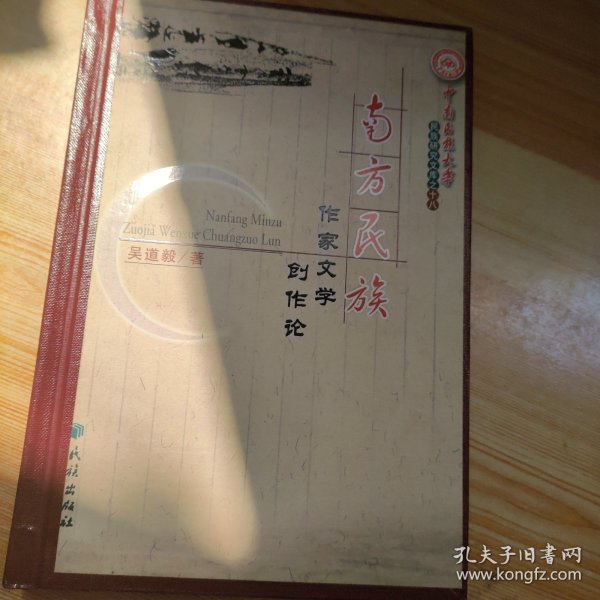 中南民族大学
民族研究文库之十八
南方民族
作家文学
创作论
Nanfang Minzu
Zuojia Wenxue Chuangzuo Lun
吴道毅/著
民族出版社
孔夫子旧书网
www.kongfz.com